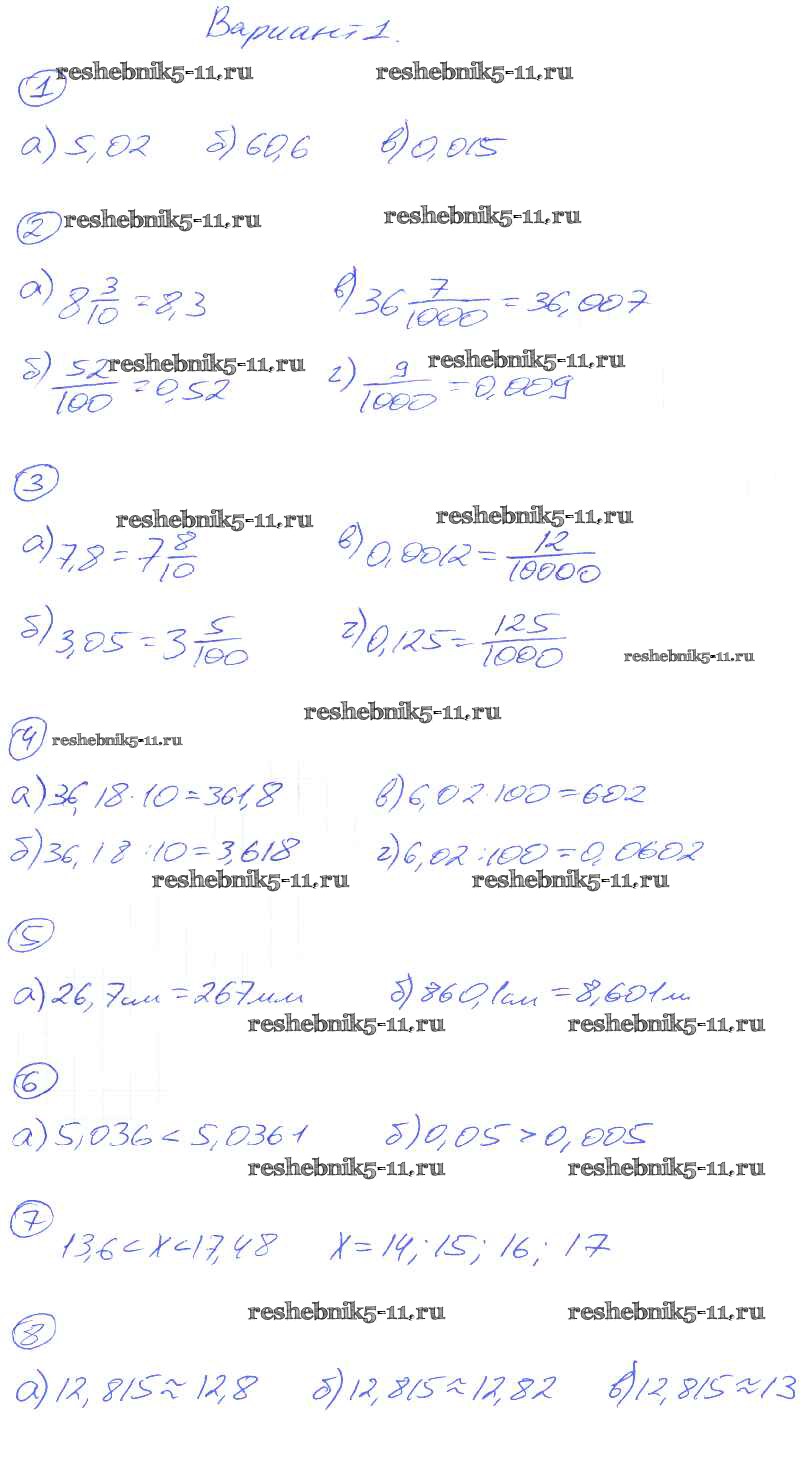 Вариант 1.
① reshebnik5-11.ru reshebnik5-11.ru
а) 5,02 б) 60,6 в) 0,015
② reshebnik5-11.ru reshebnik5-11.ru
а) 8 3/10 = 8,3 в) 36 7/1000 = 36,007
reshebnik5-11.ru reshebnik5-11.ru
б) 52/100 = 0,52 г) 9/1000 = 0,009
③
reshebnik5-11.ru reshebnik5-11.ru
а) 7,8 = 7 8/10 в) 0,0012 = 12/10000
б) 3,05 = 3 5/100 г) 0,125 = 125/1000
reshebnik5-11.ru
reshebnik5-11.ru
④ reshebnik5-11.ru
а) 36,18 · 10 = 361,8 в) 6,02 · 100 = 602
б) 36,18 : 10 = 3,618 г) 6,02 : 100 = 0,0602
reshebnik5-11.ru reshebnik5-11.ru
⑤
а) 26,7 см = 267 мм б) 860,1 см = 8,601 м
reshebnik5-11.ru reshebnik5-11.ru
⑥
а) 5,036 < 5,0361 б) 0,05 > 0,005
reshebnik5-11.ru reshebnik5-11.ru
⑦
13,6 < x < 17,48 x = 14; 15; 16; 17
reshebnik5-11.ru reshebnik5-11.ru
⑧
а) 12,815 ≈ 12,8 б) 12,815 ≈ 12,82 в) 12,815 ≈ 13